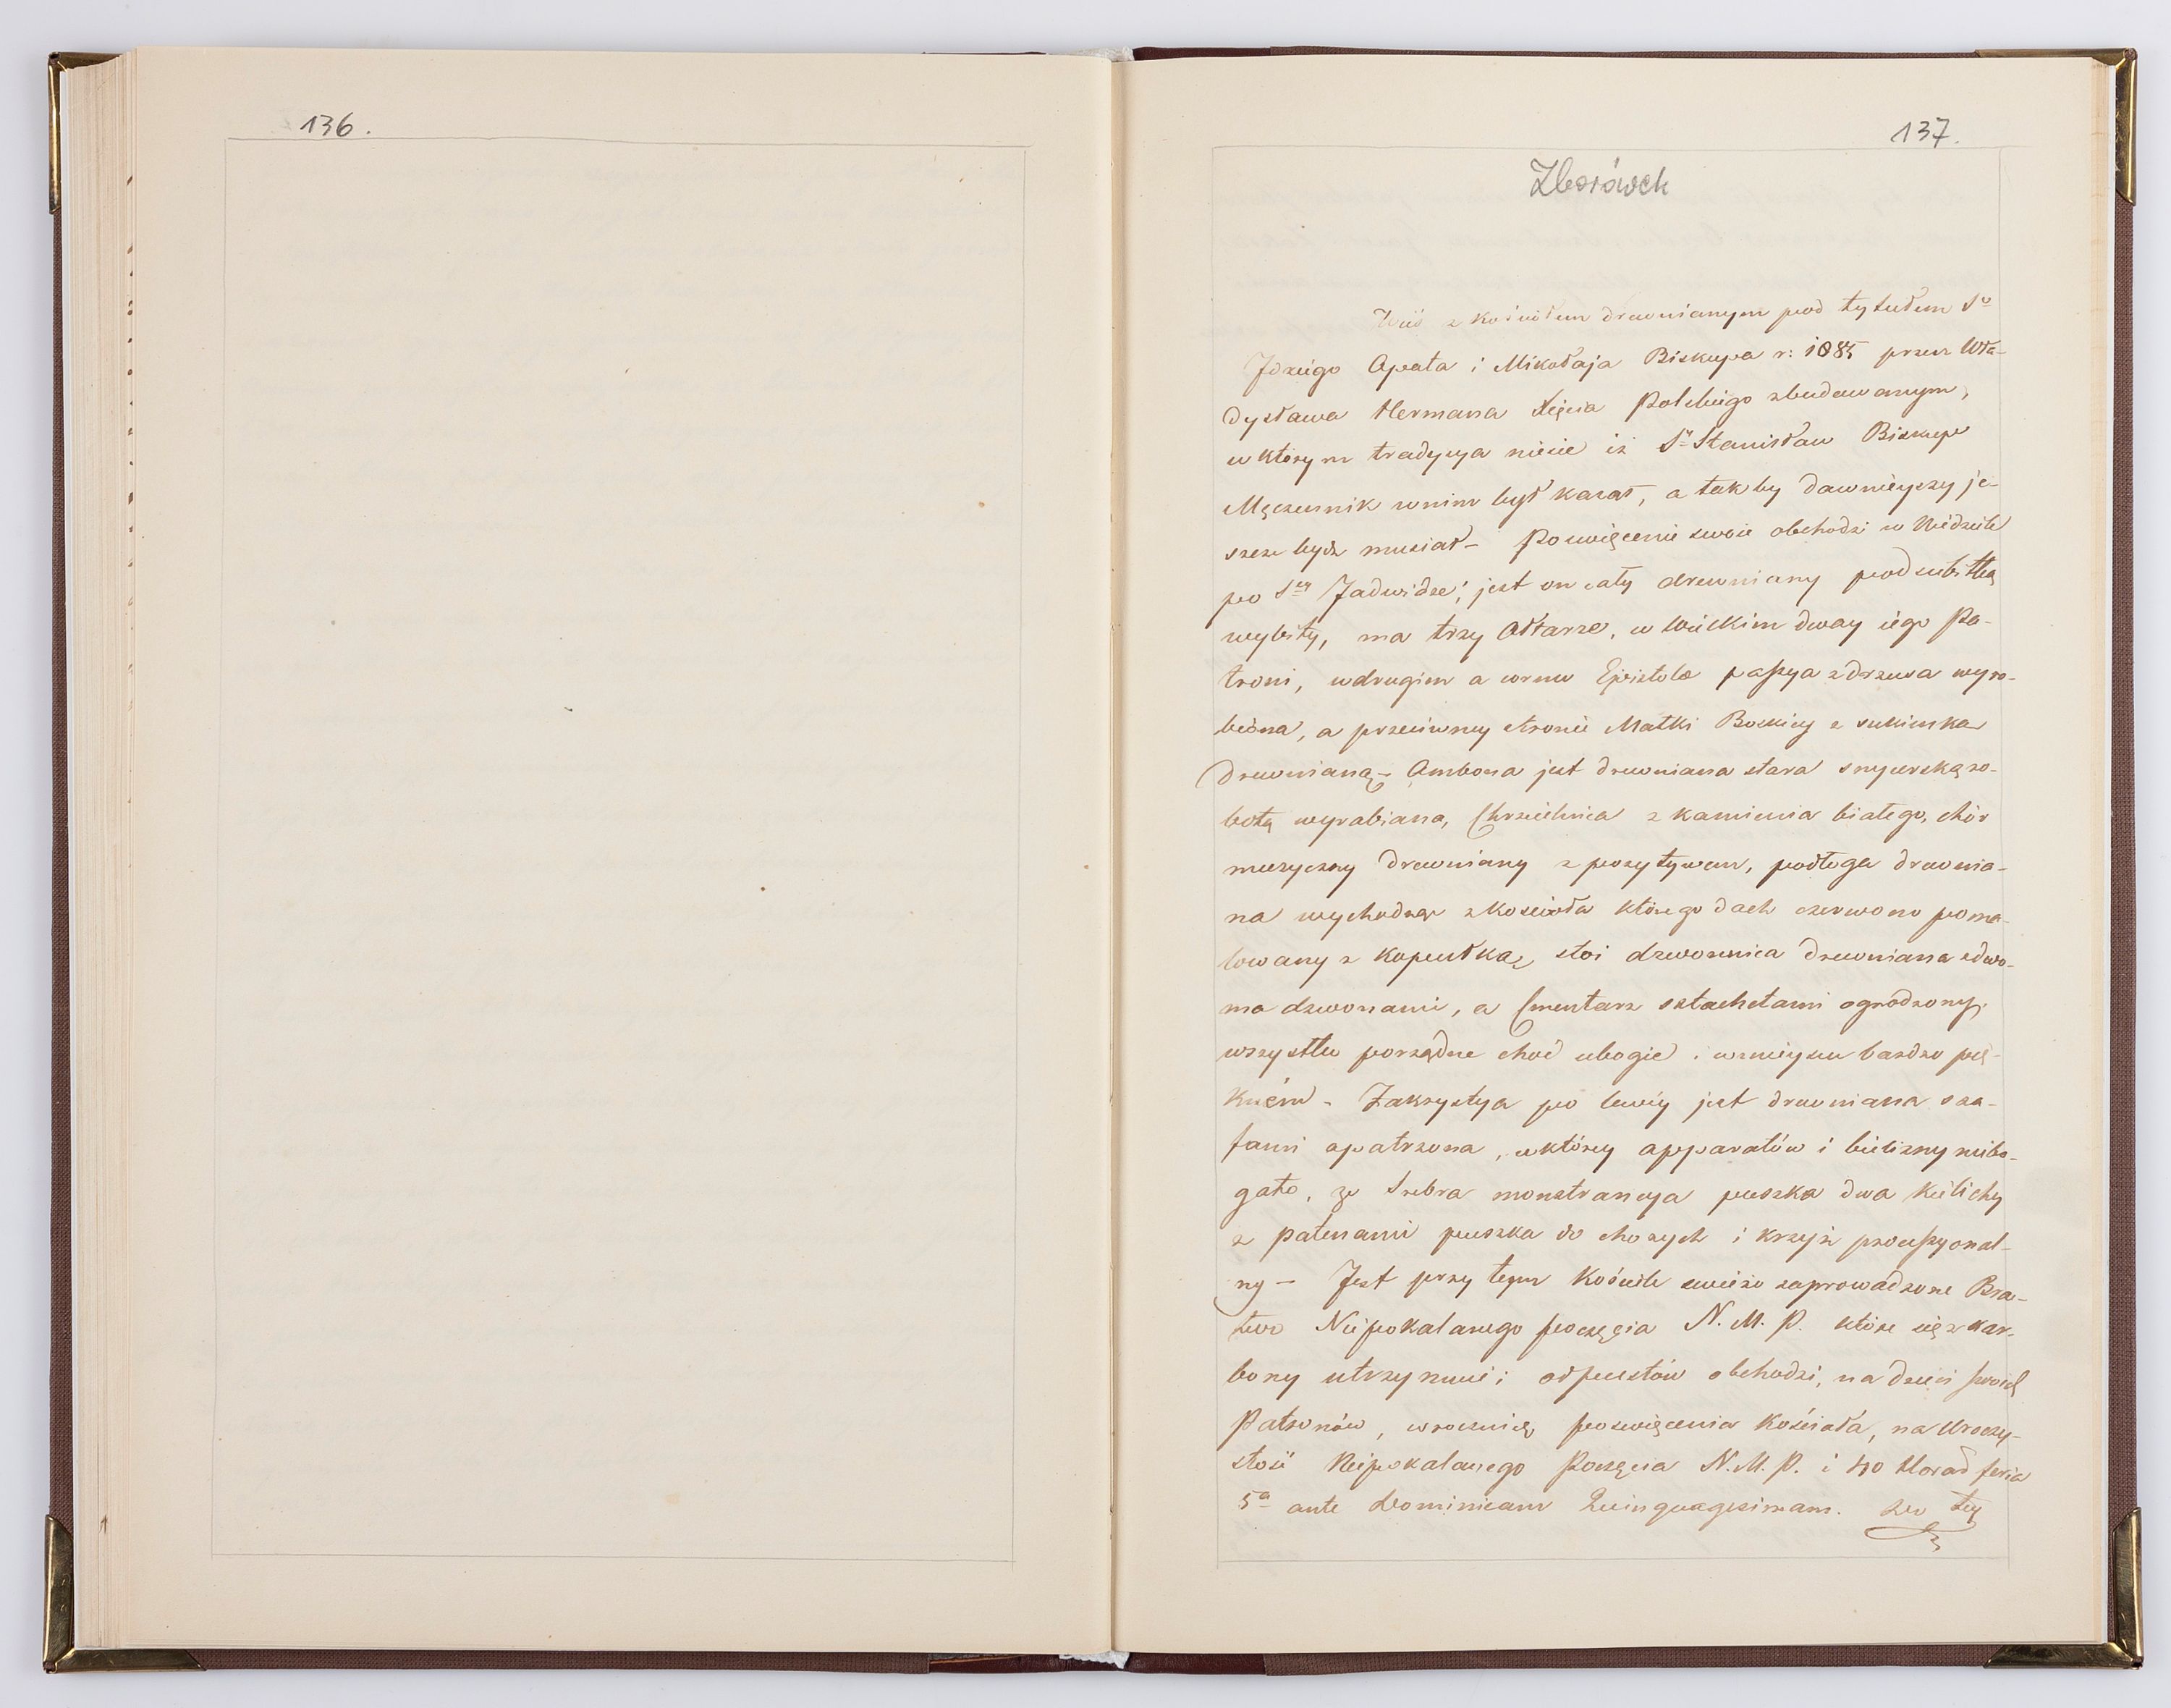 136.
137.
Zborówek
Wieś z kościołem drewnianym pod tytułem Sº
Idziego Opata i Mikołaja Biskupa r: 1085 przez Wła-
dysława Hermana Xięcia Polskiego zbudowanym,
w którym tradycya niesie iż Sy Stanisław Biskup
Męczennik w nim był kazał, a takby dawnieyszy je-
szcze bydź musiał - Poswięcenie swoie obchodzi w Niedzielę
po Sey Jadwidze; jest on cały drewniany podsubitką
wybity, ma trzy Ołtarze, w Wielkim dway iego Pa-
troni, w drugim a cornu Epistolæ passya z drzewa wyro-
biona, a przeciwney stronie Matki Boskiey z sukienką
drewnianą - Ambona jest drewniana stara snycerską ro-
botą wyrabiana, Chrzcielnica z kamienia białego, chór
muzyczny drewniany z pozytywem, podłoga drewnia-
na wychodząc z kościoła którego dach czerwono poma-
lowany z kopułką, stoi dzwonnica drewniana z dwo-
ma dzwonami, a Cmentarz sztachetami ogrodzony,
wszystko porządne choć ubogie i w mieyscu bardzo pię-
kném - Zakrystya po lewéy jest drewniana sza-
fami opatrzona, w którey apparatów i bielizny niebo-
gato, ze srebra monstrancya puszka dwa kielichy
z patenami puszka do chorych i krzyż processyonal-
ny - Jest przy tym Kościele swieżo zaprowadzone Bra-
ctwo Niepokalanego poczęcia N. M. P. które się z kar-
bony utrzymuie; odpustów obchodzi, na dzień swoich
Patronów, w rocznicę poswięcenia Kościoła, na Uroczy-
stość Niepokalanego Poczęcia N. M. P. i 40 Horad feria
5ª ante Dominicam Quinquagesimam. Do tey